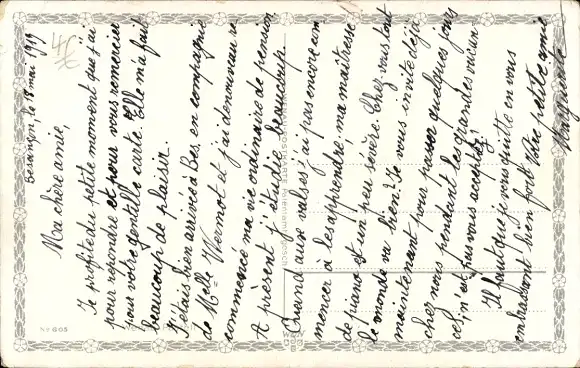 Besançon, le 8 mai 1919
Ma chère amie,
Je profite du petit moment que j'ai
pour répondre et pour vous remercier
pour votre gentille carte. Elle m'a fait
beaucoup de plaisir.
J'étais bien arrivée à Bes. en compagnie
de Melle Vernot et j'ai de nouveau re
commencé ma vie ordinaire de pension
A présent j'étudie beaucoup.
Quand aux valses j'ai pas encore com
mencer à les apprendre, ma maîtresse
de piano est un peu sévère. Chez vous tout
le monde va bien? Je vous invite déjà
maintenant pour passer quelques jours
chez nous pendant les grandes vacan-
ces, n'est pas vous acceptez!
Il faut que je vous quitte en vous
embrassant bien fort. Votre petite amie
Marguerite
No 605